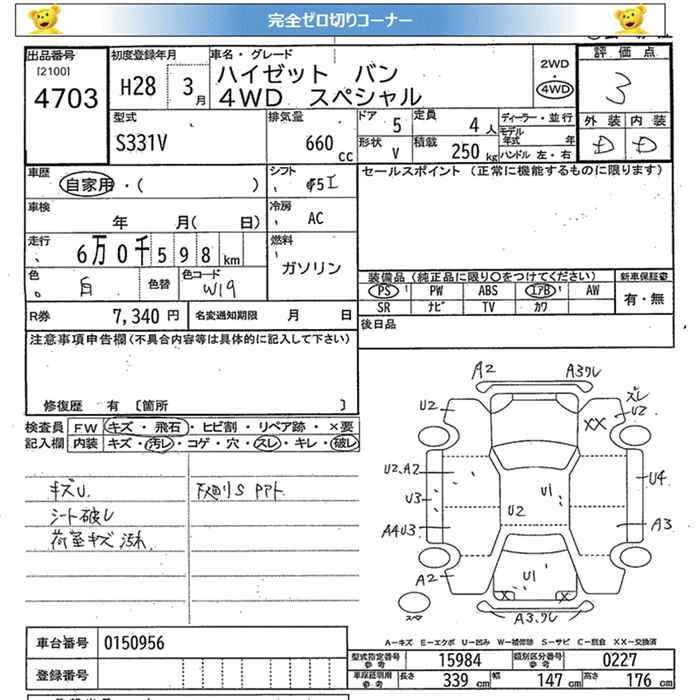 完全ゼロ切りコーナー
出品番号
[2100]
4703
初度登録年月
H28 3月
車名・グレード
ハイゼット バン
4WD スペシャル
2WD
・
4WD
評価点
3
外装 内装
D D
型式
S331V
排気量
660 cc
ドア 5
定員 4人
形状 V
積載 250 kg
ディーラー・並行
モデル年式 年
ハンドル 左・右
車歴
自家用・( )
シフト
F5 I
セールスポイント (正常に機能するものに限ります)
車検
年 月( 日)
冷房
AC
走行
6万0千598km
燃料
ガソリン
色 白
色替
色コード W19
装備品 (純正品に限り○をつけてください)
PS PW ABS エアB AW
SR ナビ TV カワ
新車保証書
有・無
R券 7,340円
名変通知期限 月 日
後日品
注意事項申告欄(不具合内容等は具体的に記入して下さい)
修復歴 有 〔箇所 〕
検査員
記入欄
FW キズ・飛石・ヒビ割・リペア跡・×要
内装 キズ・汚レ・コゲ・穴・スレ・キレ・破レ
キズU.
シート破レ
荷室キズ 汚れ.
A2 A3クレ
U2
XX
ズレ
U2
U2、A2
U3
A4U3
A2
U1
U2
U4
A3
U1
X X
スペア
A3、クレ
A-キズ E-エクボ U-凹み W-補修跡 S-サビ C-腐食 XX-交換済
車台番号 0150956
登録番号
型式指定番号
参考
15984
類別区分番号
参考
0227
車庫証明用
参考
長さ 339 cm
幅 147 cm
高さ 176 cm